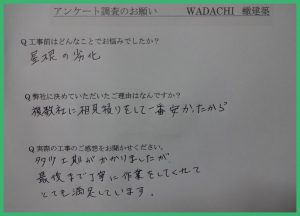 アンケート調査のお願い WADACHI 轍建築
Q 工事前はどんなことでお悩みでしたか?
屋根の劣化
Q 弊社に決めていただいたご理由はなんですか?
複数社に相見積りをして一番安かったから
Q 実際の工事のご感想をお聞かせください。
多少工期がかかりましたが
最後まで丁寧に作業をしてくれて
とても満足しています。